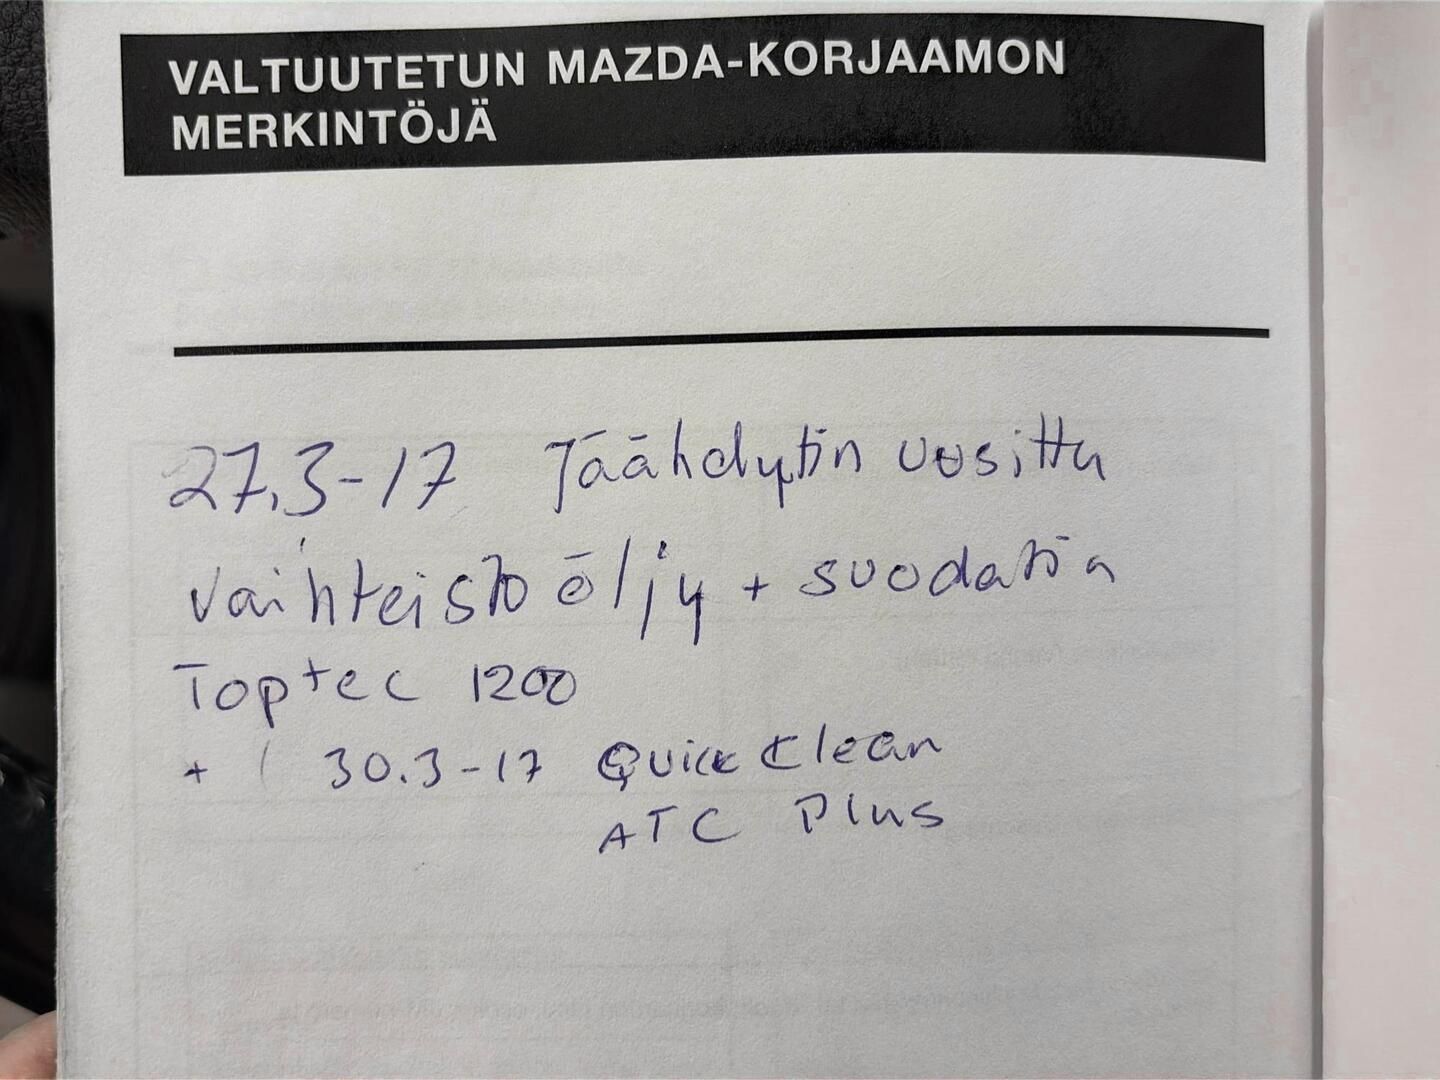 VALTUUTETUN MAZDA-KORJAAMON
MERKINTÖJÄ
27.3-17 Jäähdytin uusittu
vaihteistoöljy + suodatin
Toptec 1200
+ 30.3-17 Quick Clean
ATC Plus